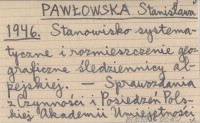 PAWŁOWSKA Stanisława
1946. Stanowisko systema-
tyczne i rozmieszczenie geo-
graficzne śledziennicy al-
pejskiej. — Sprawozdania
z Czynności i Posiedzeń Pols-
kiej Akademii Umiejętności